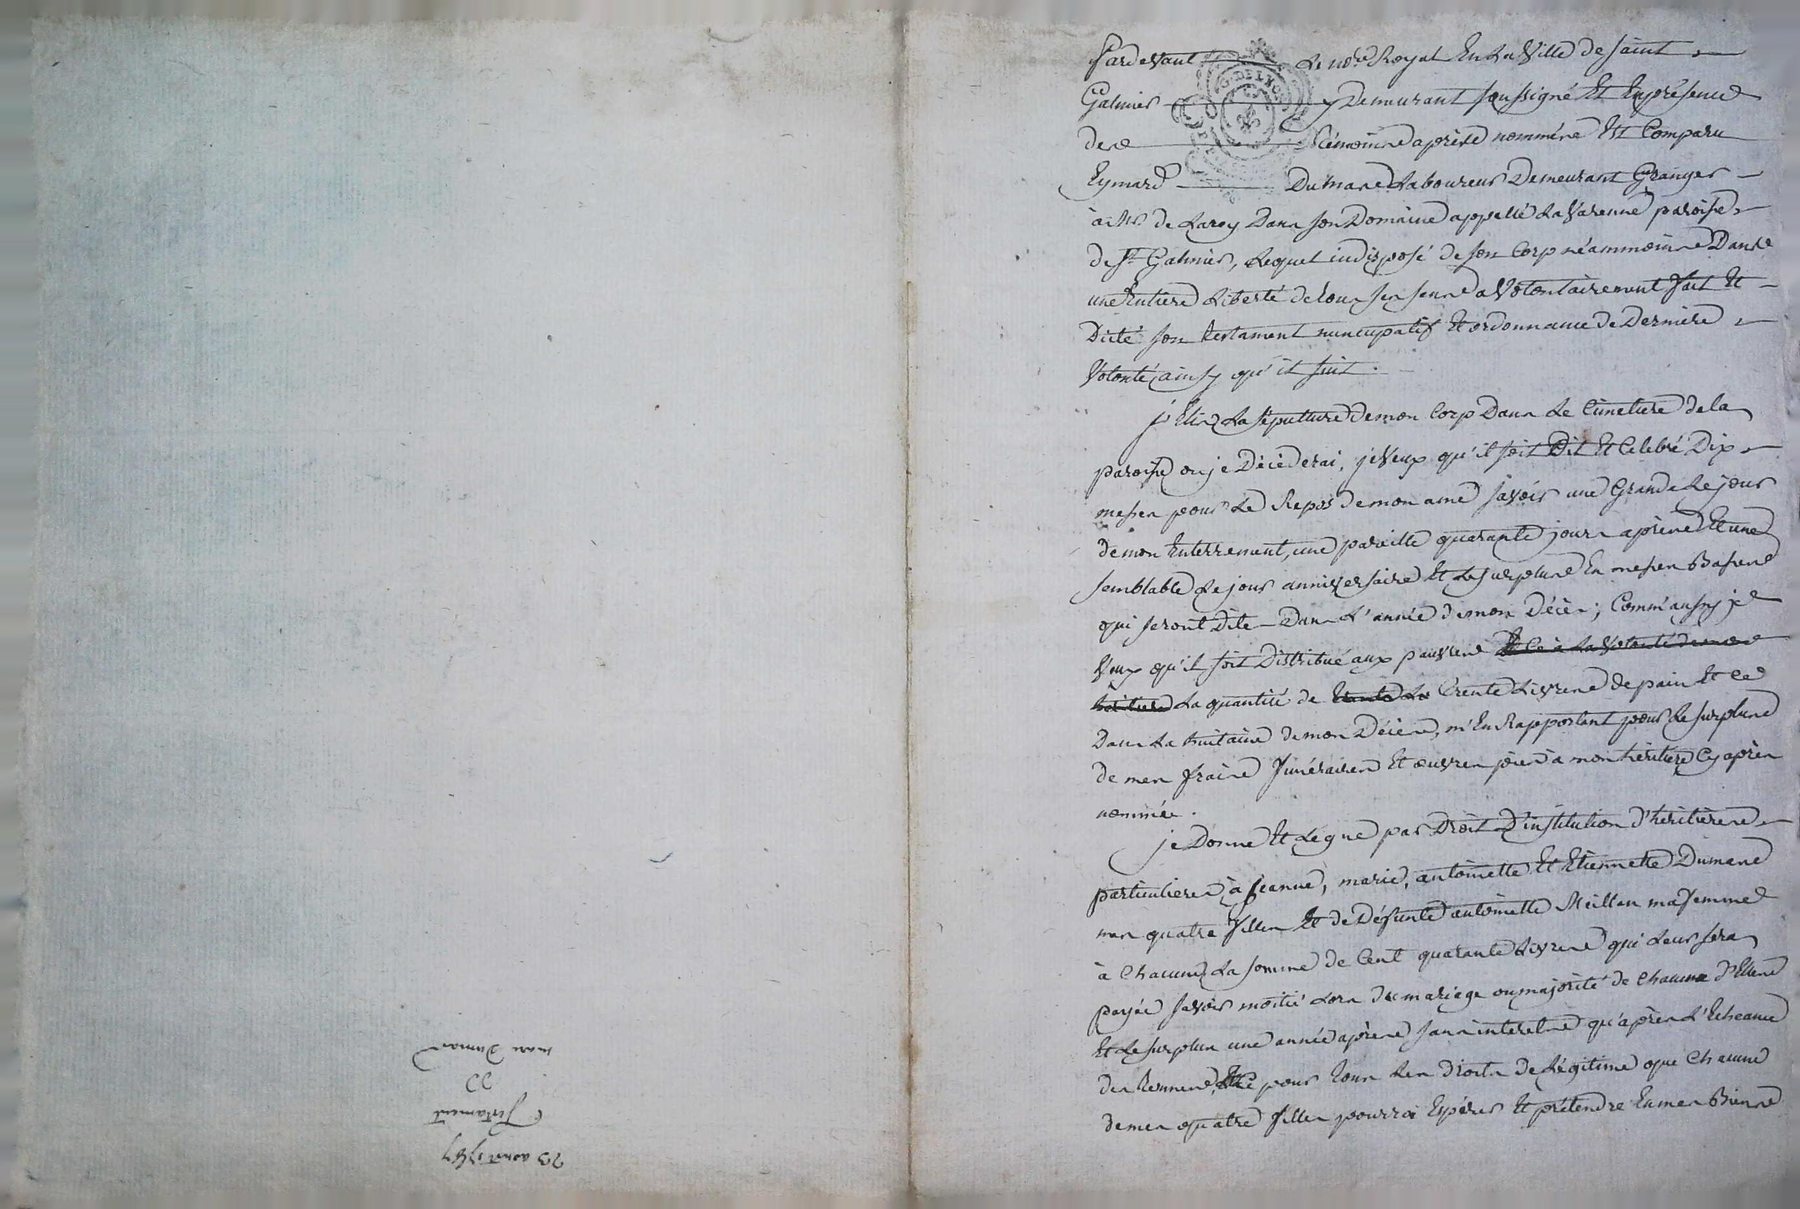 Pardevant Le no.re Royal En La Ville de Saint
Galmier y Demeurant soussigné Et En presence
des témoins après nommés Est Comparu
Eymard Dumas Laboureur Demeurant Granger
à Mr. de Laroy Dans son Domaine appellé La Varenne, paroisse
de St. Galmier, Lequel indisposé de son Corp néammoins Dans
une Entiere Liberté de tous ses sens a Volontairement fait Et
Dicté son testament nuncupatif Et ordonnance de Derniere
Volonté, ainsy qu'il suit.
j'Elis La sépulture de mon Corp Dans Le Cimetiere de la
paroisse ou je Décéderai, je Veux qu'il soit Dit Et Celebré Dix
messes pour Le Repos de mon ame savoir une Grande Le jour
de mon Enterrement, une pareille quarante jours après Et une
semblable Le jour anniversaire Et Le surplus En messes Basses
qui seront Dites Dans L'année de mon Décès; Comm'aussy je
Veux qu'il soit Distribué aux pauvres Et Ce à La Volonté de mon
héritiere La quantité de trente Li trente Livres de pain Et Ce
Dans La huitaine de mon Décès, m'En Rapportant pour Le surplus
de mes fraix funéraires Et œuvres pies à mon héritiere Cy après
nommée.
je Donne Et Legue par Droit D'institution d'héritieres
particulieres à Jeanne, marie, antoinette Et Etiennette Dumas
mes quatre filles Et de Défunte antoinette Meilleu ma femme
à Chacune La somme de Cent quarante Livres qui Leur sera
payée savoir moitié Lors du mariage ou majorité de Chacune d'Elles
Et Le surplus une année après sans interets qu'après L'Echeance
des termes, Et Ce pour tous Les droits de Légitime que Chacune
de mes quatre filles pourroi Espérer Et prétendre En mes Biens
23 aoust 1767
Testament
CC
Dumas